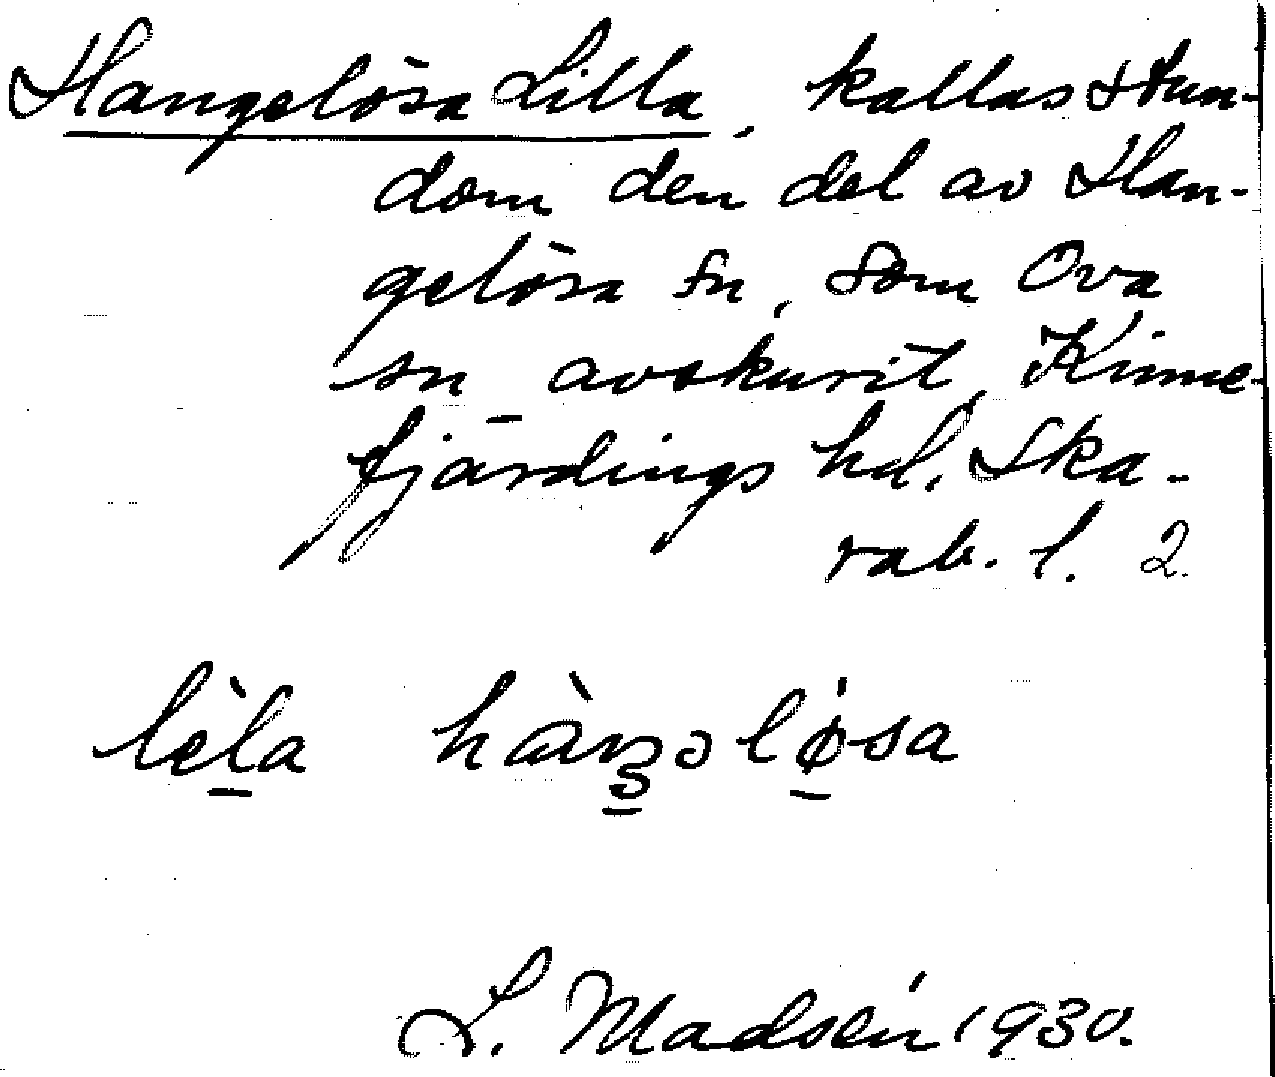 Hangelösa Lilla, kallas stun-
dom den del av Han-
gelösa sn, som Ova
sn avskurit, Kinne-
fjärdings hd. Ska-
rab. l. 2.
lèla hàŋəløsa
L. Madsén 1930.